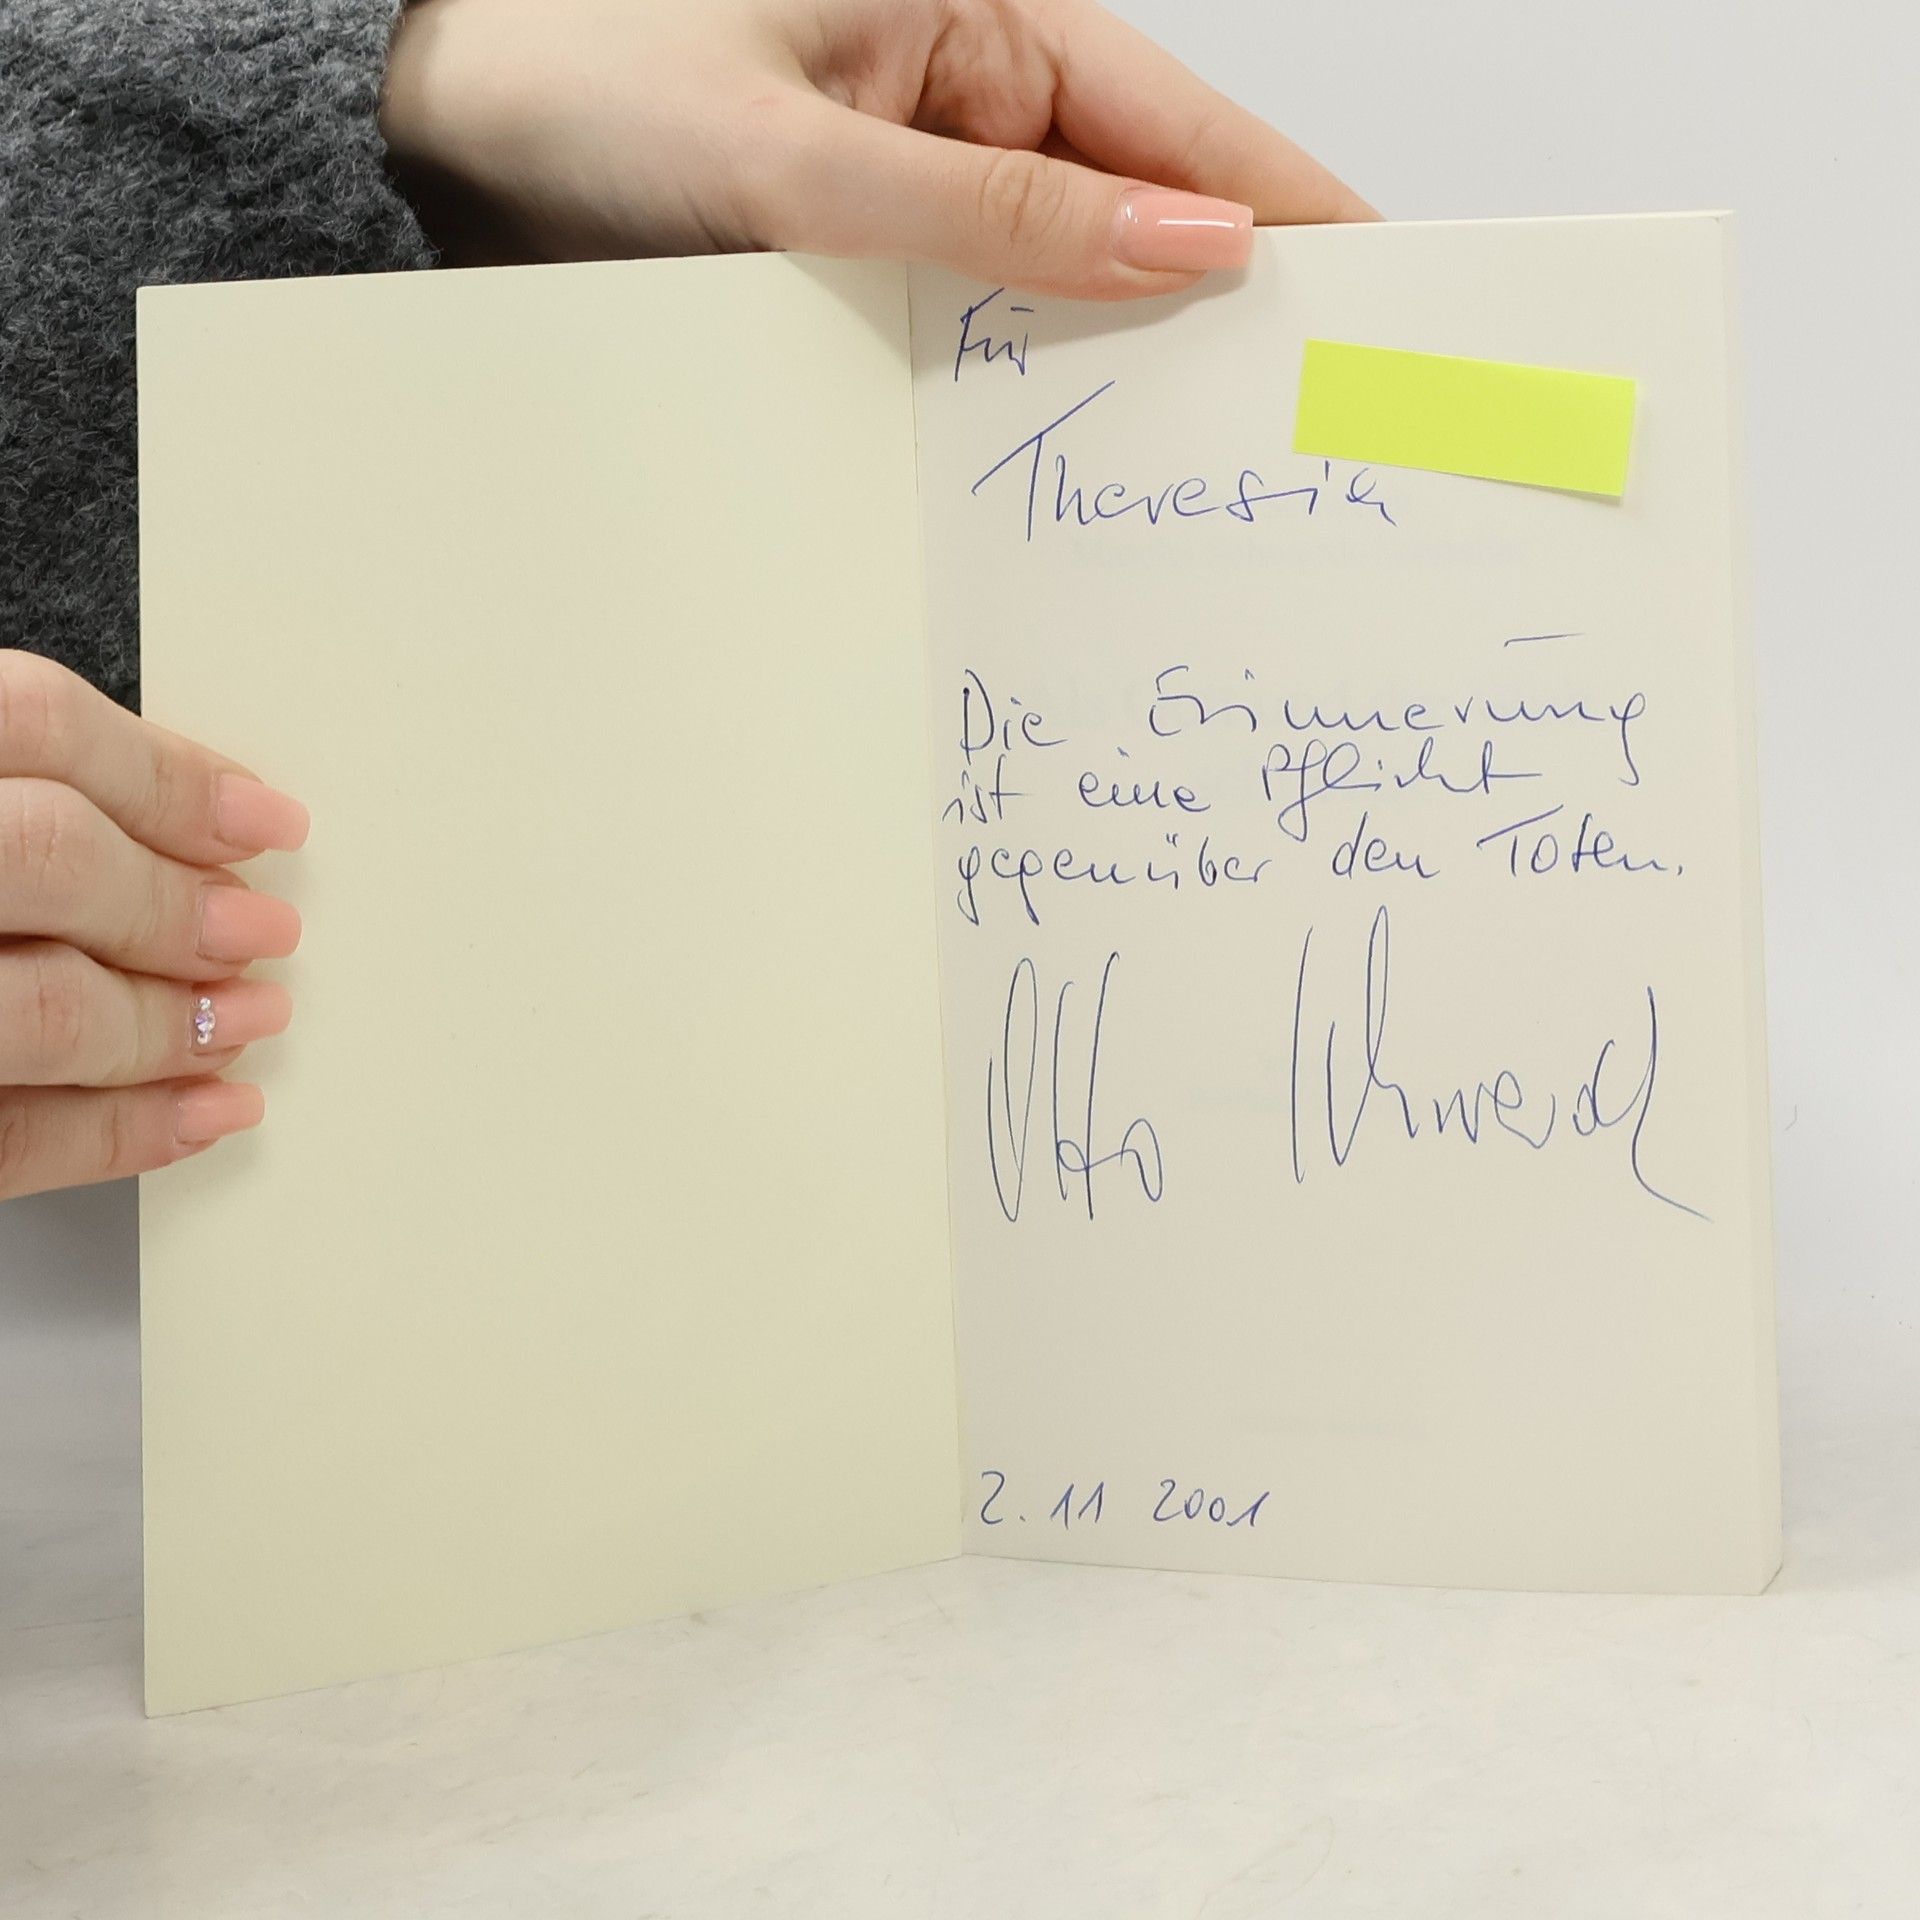 Für
Theresia
Die Erinnerung
ist eine Pflicht
gegenüber den Toten.
Otto Schwerdt
2.11 2001